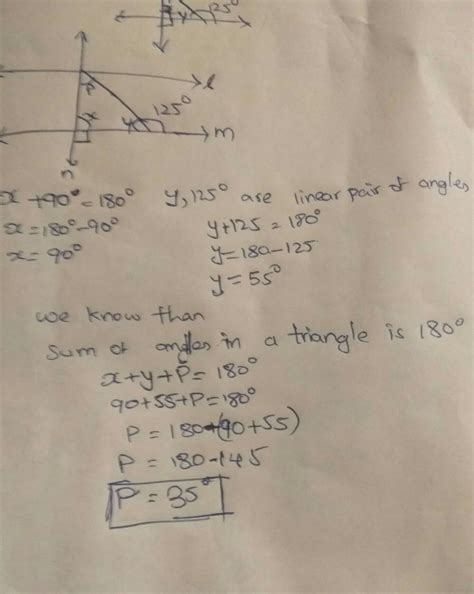 y 125°
l
P
x
y 125°
m
n
x +90° = 180° y, 125° are linear pair of angles
x = 180° - 90° y+125 = 180°
x = 90° y = 180 - 125
y = 55°
we know than
sum of angles in a triangle is 180°
x + y + P = 180°
90 + 55 + P = 180°
P = 180 - (90 + 55)
P = 180 - 145
P = 35°